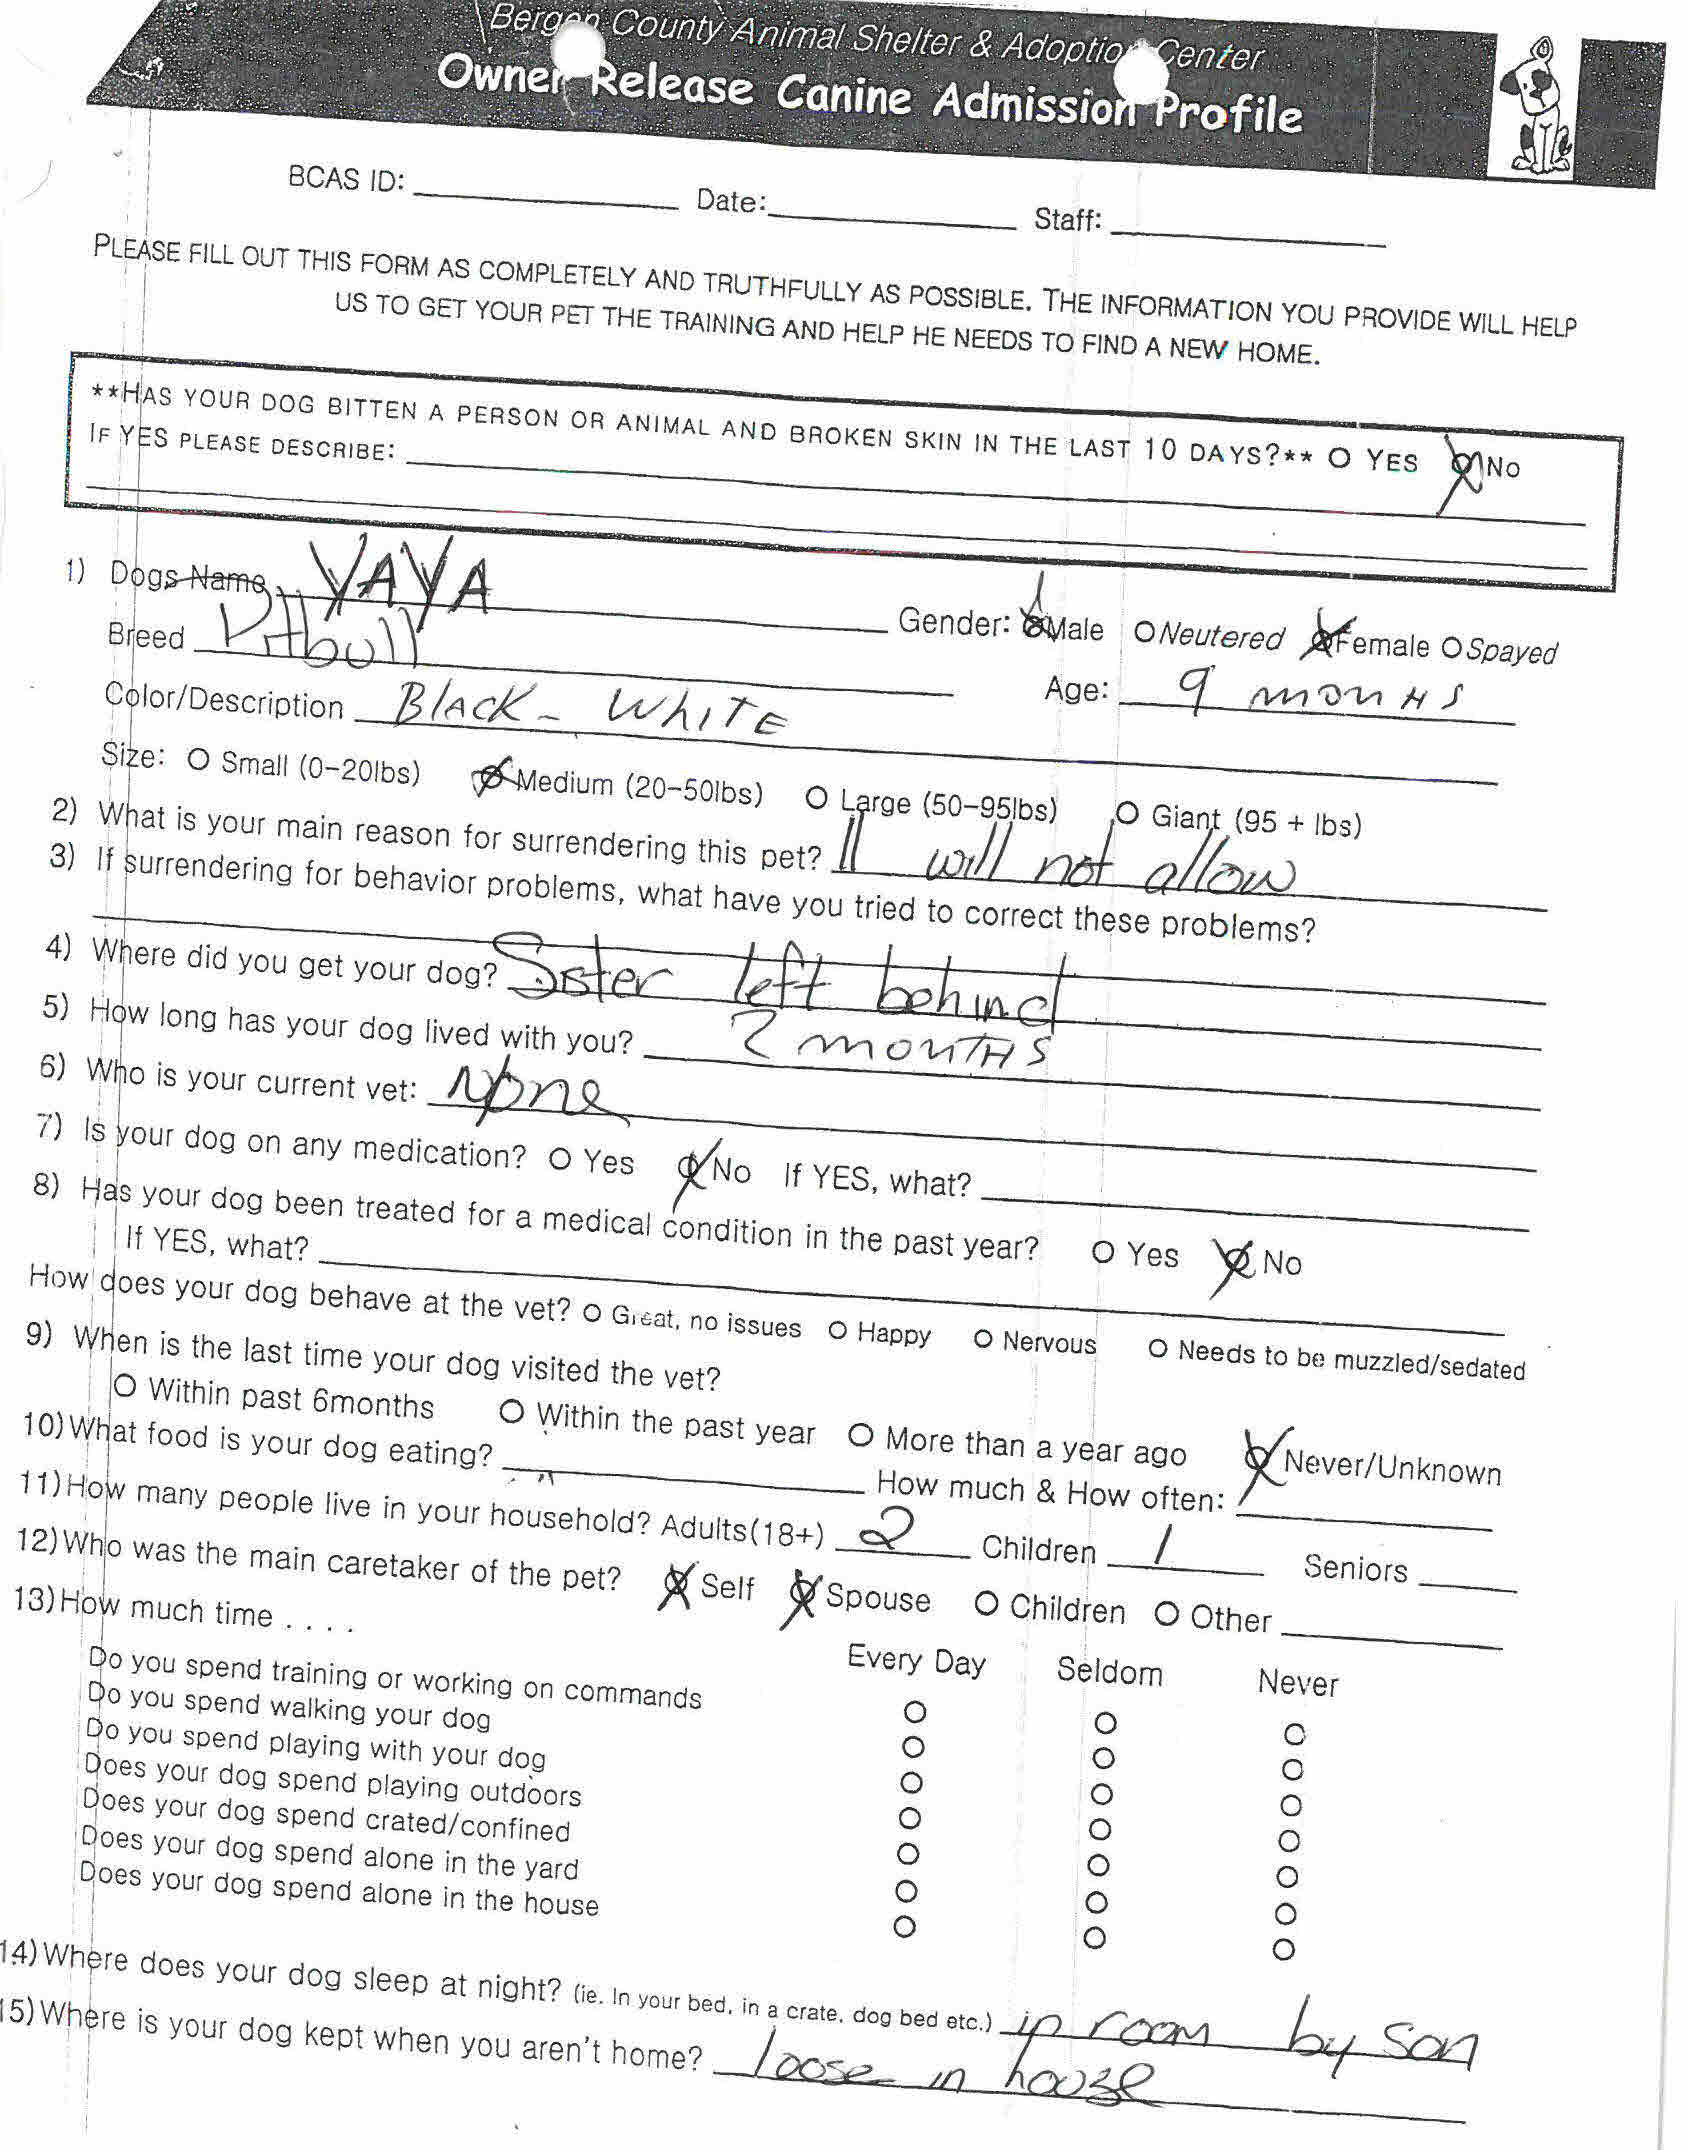 Bergen County Animal Shelter & Adoption Center
Owner Release Canine Admission Profile
BCAS ID: Date: Staff:
PLEASE FILL OUT THIS FORM AS COMPLETELY AND TRUTHFULLY AS POSSIBLE. THE INFORMATION YOU PROVIDE WILL HELP
US TO GET YOUR PET THE TRAINING AND HELP HE NEEDS TO FIND A NEW HOME.
**HAS YOUR DOG BITTEN A PERSON OR ANIMAL AND BROKEN SKIN IN THE LAST 10 DAYS?** O YES O NO
IF YES PLEASE DESCRIBE:
1) Dogs Name YAYA Gender: O Male O Neutered O Female O Spayed
Breed Pitbull Age: 9 months
Color/Description BLACK - WHITE
Size: O Small (0-20lbs) O Medium (20-50lbs) O Large (50-95lbs) O Giant (95 + lbs)
2) What is your main reason for surrendering this pet? ll will not allow
3) If surrendering for behavior problems, what have you tried to correct these problems?
4) Where did you get your dog? Sister left behind
5) How long has your dog lived with you? 2 MONTHS
6) Who is your current vet: None
7) Is your dog on any medication? O Yes O No If YES, what?
8) Has your dog been treated for a medical condition in the past year? O Yes O No
If YES, what?
How does your dog behave at the vet? O Great, no issues O Happy O Nervous O Needs to be muzzled/sedated
9) When is the last time your dog visited the vet?
O Within past 6months O Within the past year O More than a year ago O Never/Unknown
10) What food is your dog eating? How much & How often:
11) How many people live in your household? Adults(18+) 2 Children 1 Seniors
12) Who was the main caretaker of the pet? O Self O Spouse O Children O Other
13) How much time . . . .
Every Day Seldom Never
Do you spend training or working on commands O O O
Do you spend walking your dog O O O
Do you spend playing with your dog O O O
Does your dog spend playing outdoors O O O
Does your dog spend crated/confined O O O
Does your dog spend alone in the yard O O O
Does your dog spend alone in the house O O O
14) Where does your dog sleep at night? (ie. In your bed, in a crate, dog bed etc.) in room by son
15) Where is your dog kept when you aren't home? loose in house